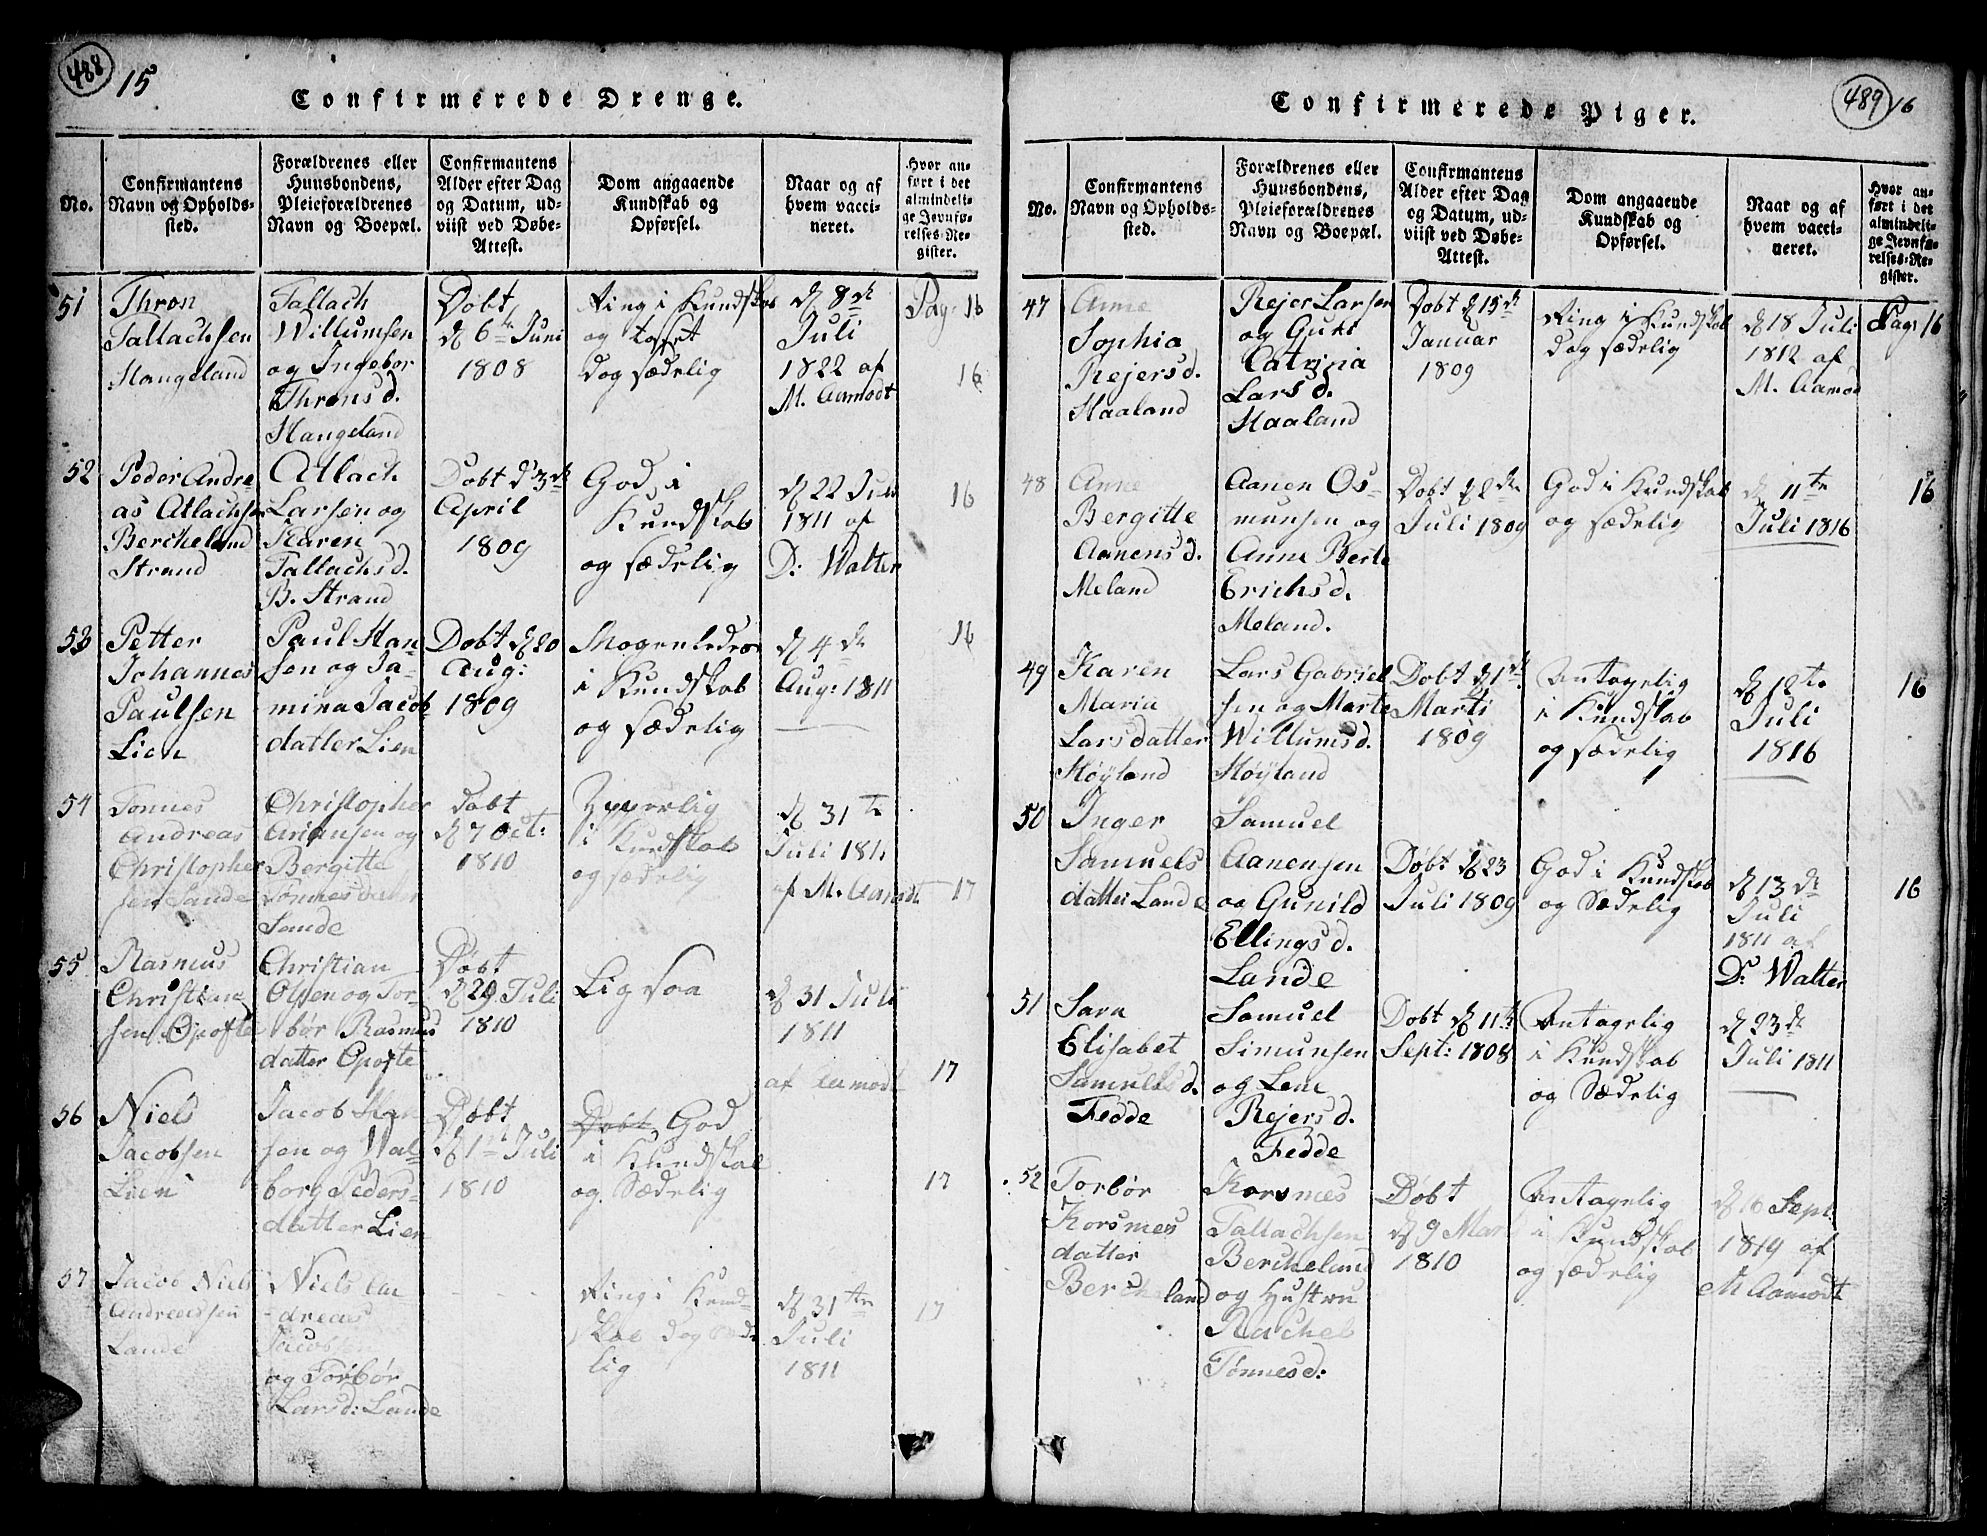 488
15
Confirmerede Drenge.
No.
Confirmantens
Navn og Opholds-
sted.
Forældrenes eller
Huusbondens,
Pleieforældrenes
Navn og Boepæl.
Confirmantens
Alder efter Dag
og Datum, ud-
viist ved Døbe-
Attest.
Dom angaaende
Kundskab og
Opførsel.
Naar og af
hvem vacci-
neret.
Hvor an-
ført i det
almindeli-
ge Jevnfø-
relses-Re-
gister.
51
Thron
Tallachsen
Hangeland
Tallach
Willumsen
og Ingebor
Thronsd.
Hangeland
Døbt
d 6te Juni
1808
Ring i Kundskab
og
dog sædelig
d 8de
Juli
1822 af
M. Aamodt
Pag: 16
16
52
Peder Andre
as Atlachsen
Bercheland
Strand
Atlach
Larsen og
Karen
Tallachsd.
B. Strand
Døbt d 3de
April
1809
God i
Kundskab
og sædelig
d 22 Juli
1811 af
D: Walter
16
53
Petter
Johannes
Paulsen
Lien
Paul Han
sen og Ja-
mina Jacob
datter Lien
Døbt d 20
Aug:
1809
Mogenledes
i Kundskab
og sædelig
d 4de
Aug: 1811
16
54
Tonnes
Andreas
Christopher
sen Sande
Christopher
Ariansen og
Bergitte
Tonnesdatter
Sande
Døbt
d 7 Oct:
1810
Ypperlig
i Kundskab
og sædelig
d 31te
Juli 1811
af M. Aamodt
17
55
Rasmus
Christian
sen Opofte
Christian
Olsen og Tor-
bør Rasmus
datter Opofte
Døbt
d 29 Juli
1810
Ligsaa
d 31 Juli
1811
af Aamodt
17
56
Niels
Jacobsen
Lien
Jacob Han
sen og Wal-
borg Peders-
datter Lien
Døbt
d 1te Juli
1810
Døbt God
i Kundskab
og Sædelig
17
57
Jacob Niels
Andreassen
Lande
Niels An
dreas
Jacobsen
og Torbør
Larsd: Lande
Ring i Kund-
skab dog sæde
lig
d 31te
Juli
1811
17
489
16
Confirmerede Piger.
No.
Confirmantens
Navn og Opholds-
sted.
Forældrenes eller
Huusbondens,
Pleieforældrenes
Navn og Boepæl.
Confirmantens
Alder efter Dag
og Datum, ud-
viist ved Døbe-
Attest.
Dom angaaende
Kundskab og
Opførsel.
Naar og af
hvem vacci-
neret.
Hvor an-
ført i det
almindeli-
ge Jevnfø-
relses-Re-
gister.
47
Anne
Sophia
Rejersd.
Haaland
Rejer Larsen
og Guri
Catrina
Larsd.
Haaland
Døbt d 15de
Januar
1809
Ring i Kundskab
dog sædelig
d 18 Juli
1812 af
M. Aamod
Pag: 16
48
Anne
Bergitte
Aanensd.
Meland
Aanen Os-
munsen og
Anne Berte
Erichsd.
Meland.
Døbt d 2den
Juli 1809
God i Kundskab
og sædelig
d 11te
Juli 1816
16
49
Karen
Maria
Larsdatter
Høyland
Lars Gabriel
sen og Marte
Willumsd.
Høyland
Døbt d 1te
Marti
1809
Antagelig
i Kundskab
og sædelig
d 12te
Juli
1816
16
50
Inger
Samuels
datter Lande
Samuel
Aanensen
og Gunild
Ellingsd.
Lande
Døbt d 23
Juli 1809
God i Kundskab
og Sædelig
d 13de
Juli
1811 af
Dr Walter
16
51
Sara
Elisabet
Samuelsd.
Fedde
Samuel
Simunsen
og Lene
Rejersd.
Fedde
Døbt d 11te
Sept: 1808
Antagelig
i Kundskab
og Sædelig
d 23de
Juli 1811
52
Torbør
Korsmes
datter
Bercheland
Korsmes
Tallachsen
Bercheland
og Hustru
Rachel
Tønnesd:
Døbt
d 9 Mart
1810
Antagelig
i Kundskab
og sædelig
d 16 Sept.
1819 af
M Aamodt